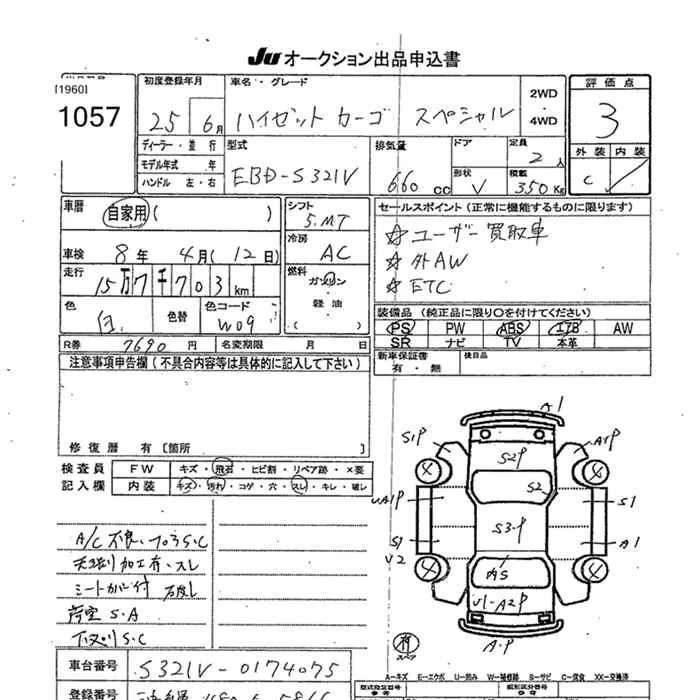 Ju オークション出品申込書
[1960]
1057
初度登録年月
25 6月
車名・グレード
ハイゼット カーゴ スペシャル
2WD
4WD
評価点
3
外装 内装
C
ディーラー・並行
モデル年式 年
ハンドル 左・右
型式
EBD-S321V
排気量
660 cc
ドア
形状 V
定員
2人
積載
350 Kg
車歴 自家用 ( )
シフト
5.MT
車検 8年 4月 (12日)
冷房
AC
走行 15万7千703km
燃料
ガソリン
軽油
( )
色 白 色替
色コード
W09
R券 7690円 名変期限 月 日
セールスポイント (正常に機能するものに限ります)
☆ユーザー買取車
☆外AW
☆ETC
装備品 (純正品に限り○を付けてください)
PS PW ABS エアB AW
SR ナビ TV 本革
新車保証書
有・無
後日品
注意事項申告欄 (不具合内容等は具体的に記入して下さい)
修復歴 有 [箇所 ]
検査員
記入欄
FW キズ・飛石・ヒビ割・リペア跡・×要
内装 キズ・汚れ・コゲ・穴・スレ・キレ・破レ
A/C不良、フロアS・C
天張り加工有・スレ
シートカバー付
荷室 S・A
下廻りS・C
A1
S1P
A1P
S2P
4
4
S2
UA1P
S1
S3-P
S1
A1
U2
4
4
内S
U1-A2P
A・P
A…キズ E…エクボ U…凹み W…補修跡 S…サビ C…腐食 XX…交換済
車台番号 S321V-0174075
登録番号